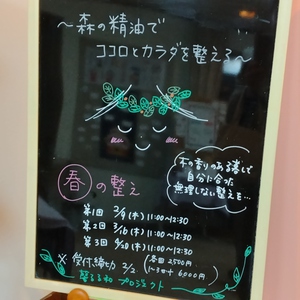 ～森の精油で
ココロとカラダを整える～
木の香りのある暮しで
自分に合った
無理しない整えを…
春の整え
第1回 2/9(木) 11:00〜12:30
第2回 3/16(木) 11:00〜12:30
第3回 (木) 11:00〜12:30
※受付締切 2/2
各回 2,500円
1〜3回 6,000円
プロジェクト